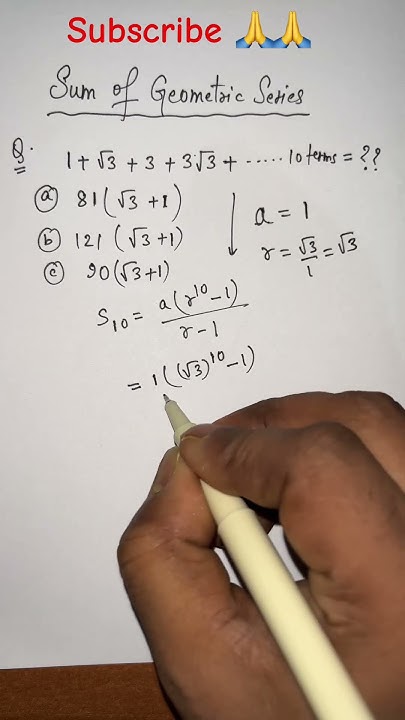 Subscribe 🙏🙏
Sum of Geometric Series
Q. 1 + √3 + 3 + 3√3 + ..... 10 terms = ??
(a) 81(√3 + 1)
(b) 121 (√3 + 1)
(c) 90(√3 + 1)
a = 1
r = √3/1 = √3
S₁₀ = a(r¹⁰ - 1)/r - 1
= 1((√3)¹⁰ - 1)